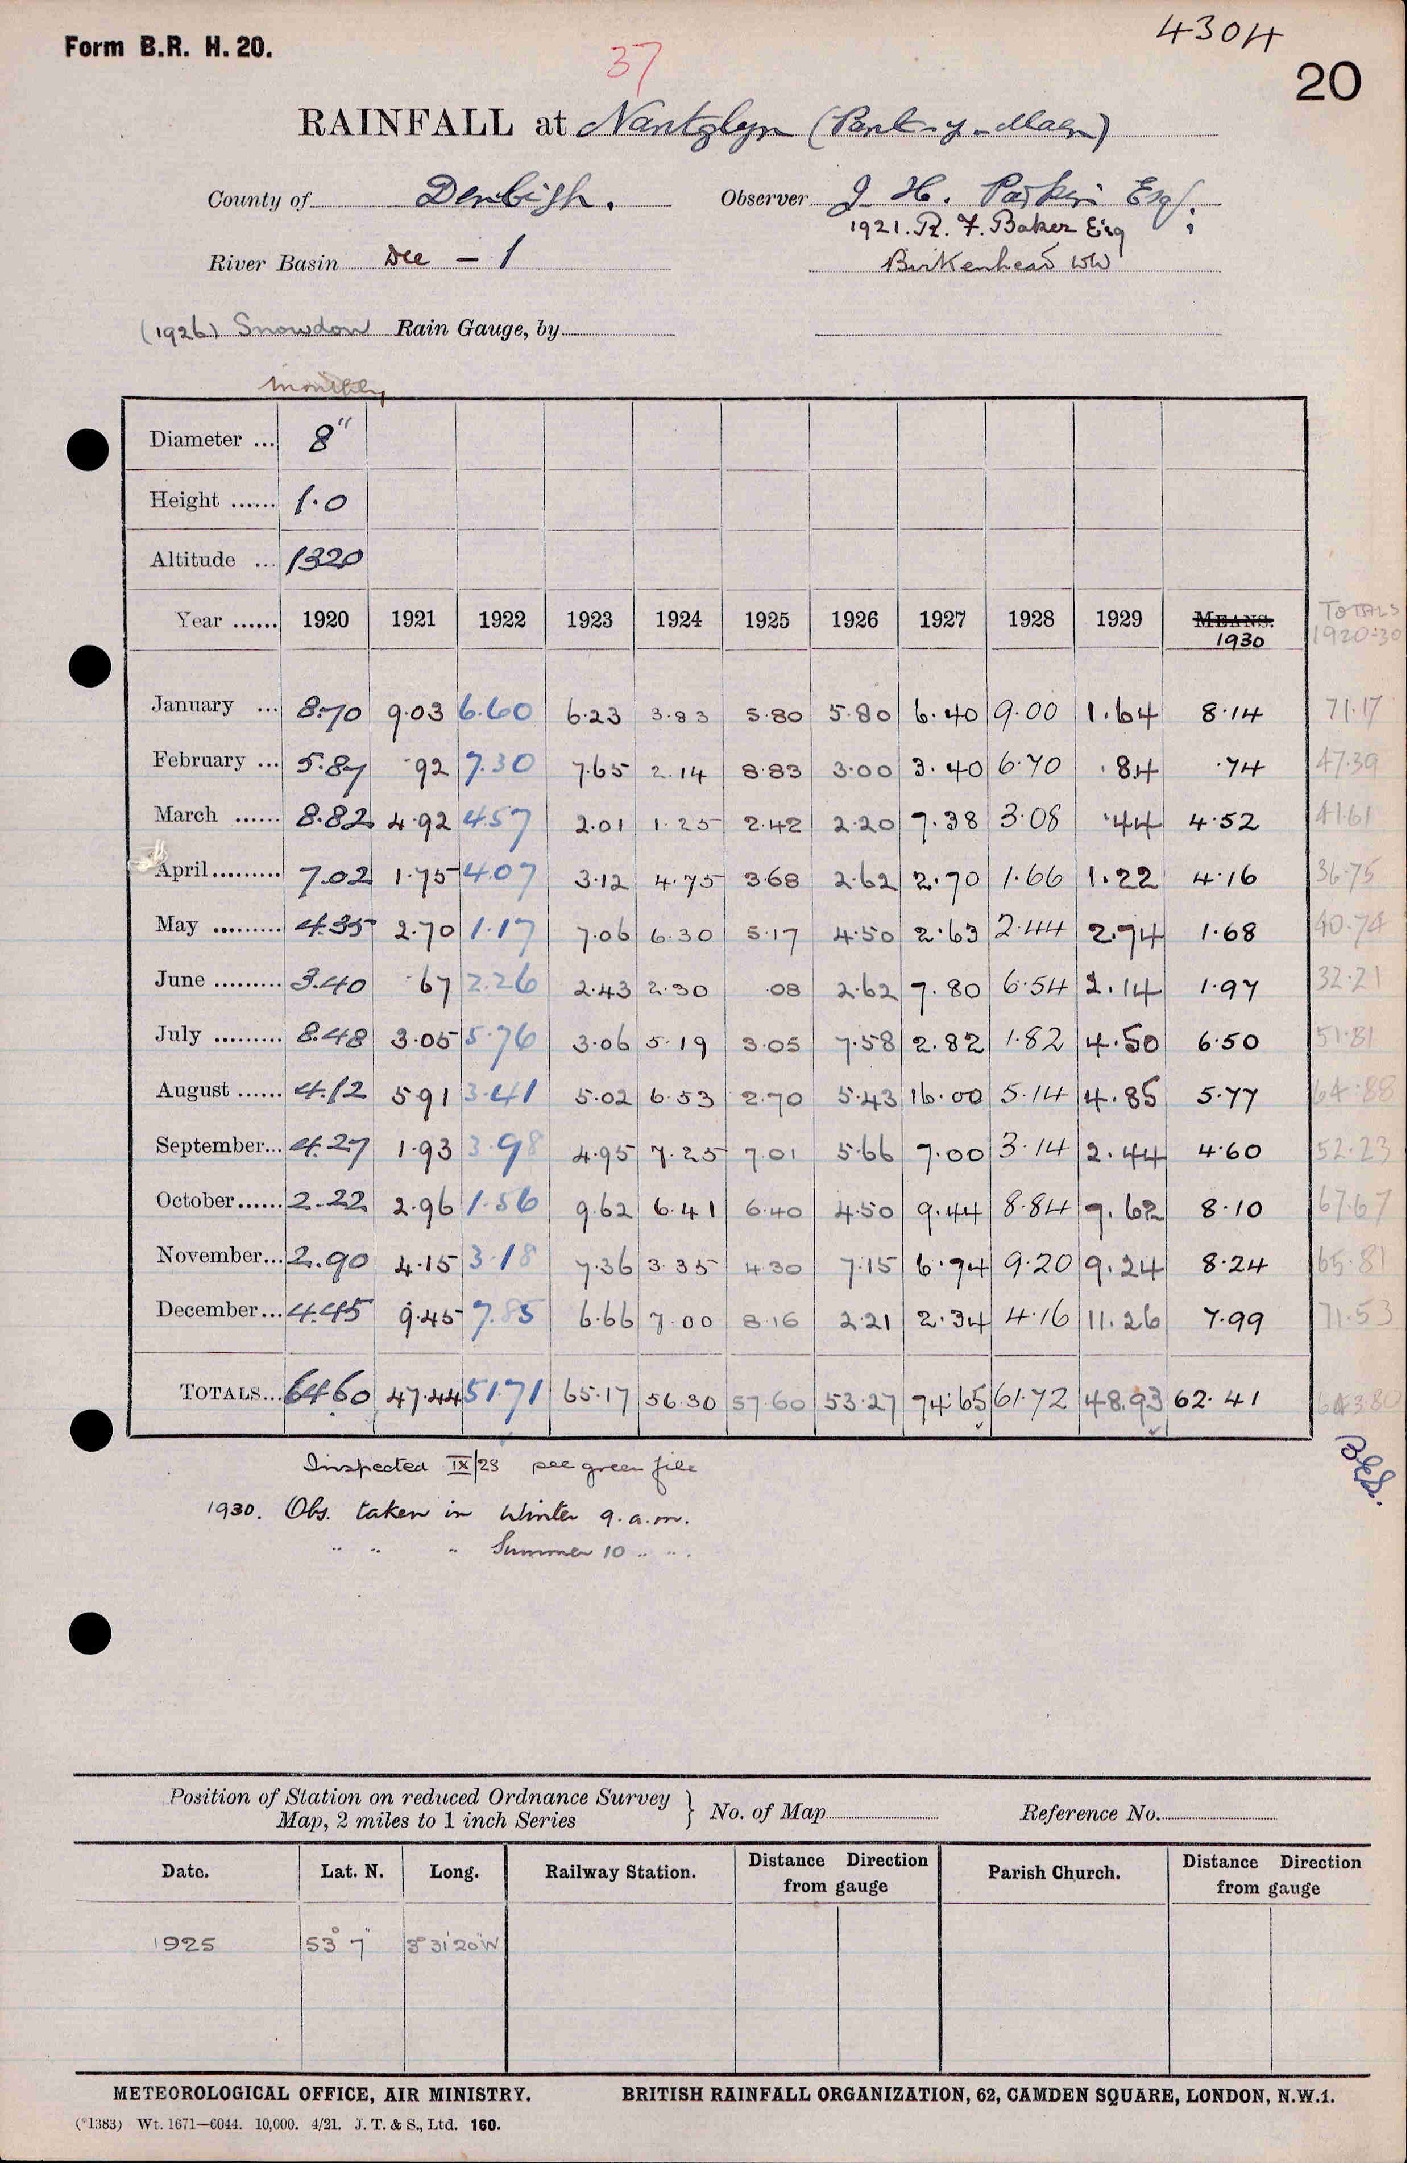 Form B.R. H. 20.
4304
37
20
RAINFALL at Nantglyn (Park-y-Maen)
County of Denbigh. Observer J H. Parkin Esq.
1921. R. F. Baker Esq
River Basin Dee - 1 Birkenhead WW
(1926) Snowdon Rain Gauge, by
monthly
Diameter ... 8"
Height ...... 1.0
Altitude ... 1320
Year ...... 1920 1921 1922 1923 1924 1925 1926 1927 1928 1929 MEANS. 1930 TOTALS 1920-30
January ... 8.70 9.03 6.60 6.23 3.83 5.80 5.80 6.40 9.00 1.64 8.14 71.17
February ... 5.87 .92 7.30 7.65 2.14 8.83 3.00 3.40 6.70 .84 .74 47.39
March ...... 8.82 4.92 4.57 2.01 1.25 2.42 2.20 7.38 3.08 .44 4.52 41.61
April......... 7.02 1.75 4.07 3.12 4.75 3.68 2.62 2.70 1.66 1.22 4.16 36.75
May ......... 4.35 2.70 1.17 7.06 6.30 5.17 4.50 2.63 2.44 2.74 1.68 40.74
June ......... 3.40 .67 2.26 2.43 2.30 .08 2.62 7.80 6.54 2.14 1.97 32.21
July ......... 8.48 3.05 5.76 3.06 5.19 3.05 7.58 2.82 1.82 4.50 6.50 51.81
August ...... 4.12 5.91 3.41 5.02 6.53 2.70 5.43 16.00 5.14 4.85 5.77 64.88
September... 4.27 1.93 3.98 4.95 7.25 7.01 5.66 7.00 3.14 2.44 4.60 52.23
October...... 2.22 2.96 1.56 9.62 6.41 6.40 4.50 9.44 8.84 9.62 8.10 67.67
November... 2.90 4.15 3.18 7.36 3.35 4.30 7.15 6.74 9.20 9.24 8.24 65.81
December... 4.45 9.45 7.85 6.66 7.00 8.16 2.21 2.34 4.16 11.26 7.99 71.53
TOTALS... 64.60 47.44 51.71 65.17 56.30 57.60 53.27 74.65 61.72 48.93 62.41 643.80
Inspected IX/28 see green file
1930. Obs. taken in Winter 9.a.m.
" " " Summer 10 " "
Position of Station on reduced Ordnance Survey
Map, 2 miles to 1 inch Series } No. of Map Reference No.
Date. Lat. N. Long. Railway Station. Distance Direction from gauge Parish Church. Distance Direction from gauge
1925 53° 7' 3° 31' 20" W
METEOROLOGICAL OFFICE, AIR MINISTRY. BRITISH RAINFALL ORGANIZATION, 62, CAMDEN SQUARE, LONDON, N.W.1.
(*1383) Wt. 1671—6044. 10,000. 4/21. J. T. & S., Ltd. 160.